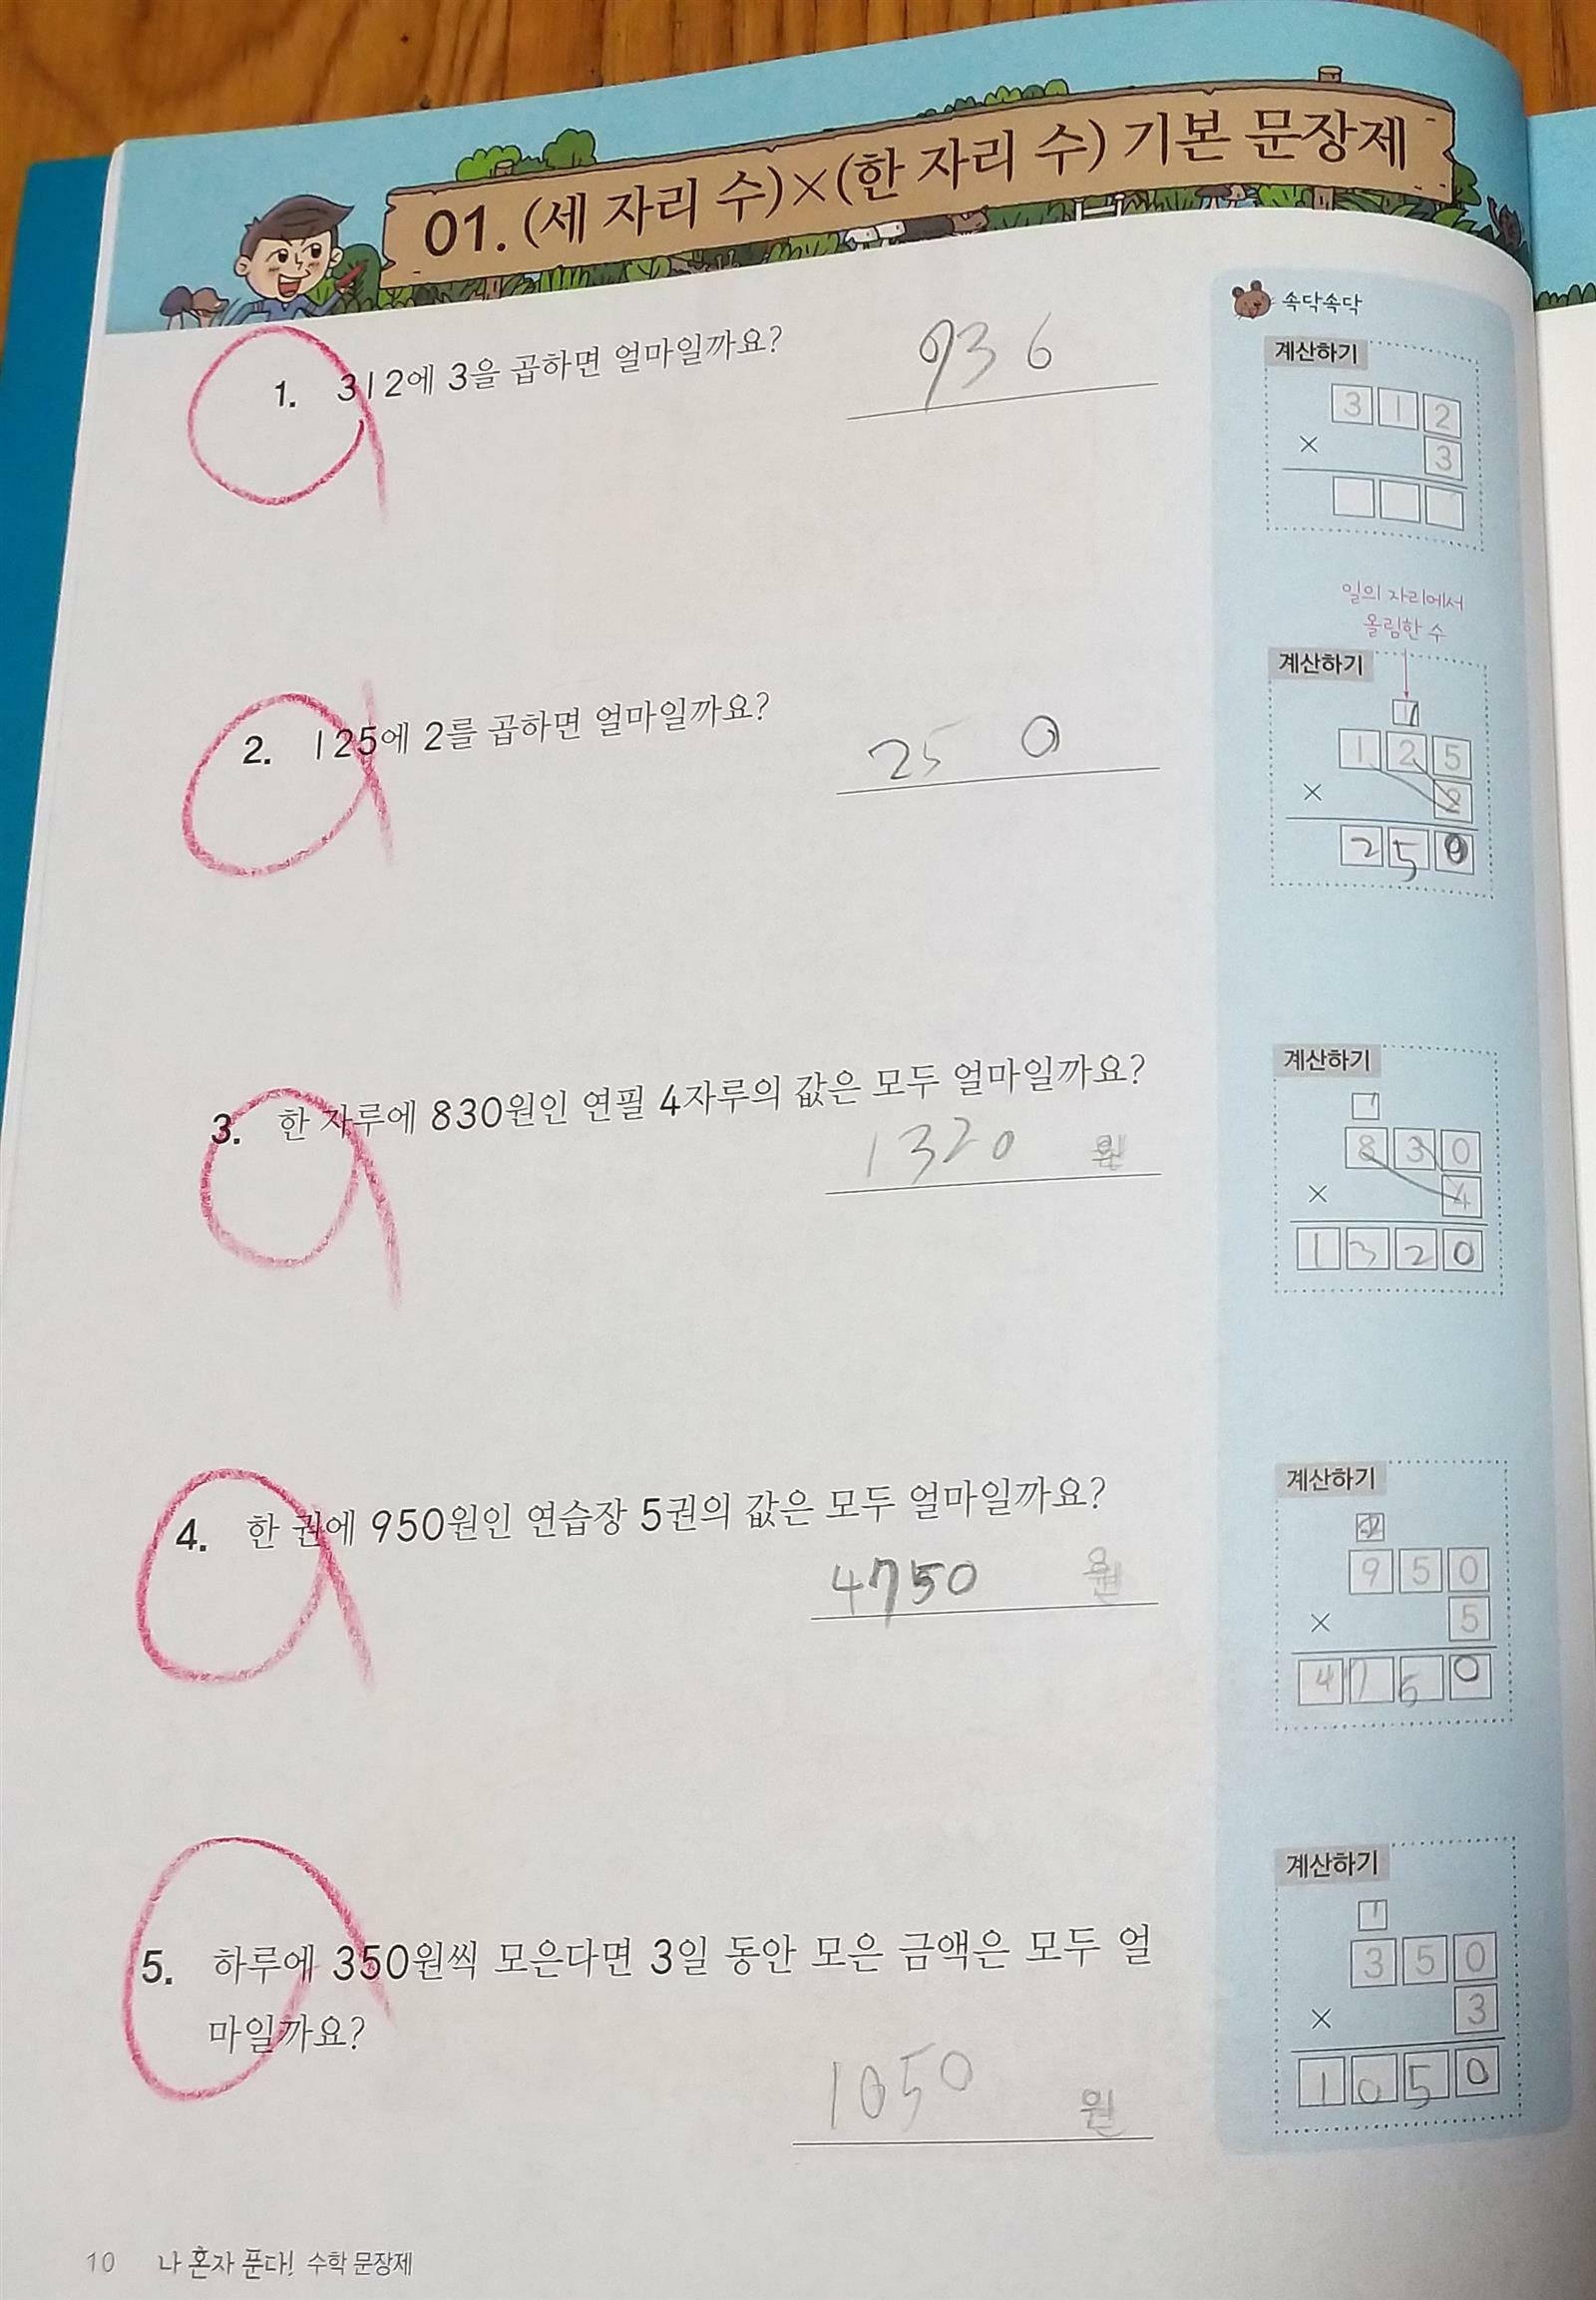 01. (세 자리 수)×(한 자리 수) 기본 문장제
1. 312에 3을 곱하면 얼마일까요?
936
속닥속닥
계산하기
3 1 2
× 3
2. 125에 2를 곱하면 얼마일까요?
25 0
일의 자리에서
올림한 수
계산하기
1
1 2 5
× 2
2 5 0
3. 한 자루에 830원인 연필 4자루의 값은 모두 얼마일까요?
1320 원
계산하기
1
8 3 0
× 4
1 3 2 0
4. 한 권에 950원인 연습장 5권의 값은 모두 얼마일까요?
4750 원
계산하기
2
9 5 0
× 5
4 7 5 0
5. 하루에 350원씩 모은다면 3일 동안 모은 금액은 모두 얼
마일까요?
1050 원
계산하기
1
3 5 0
× 3
1 0 5 0
10 나 혼자 푼다! 수학 문장제